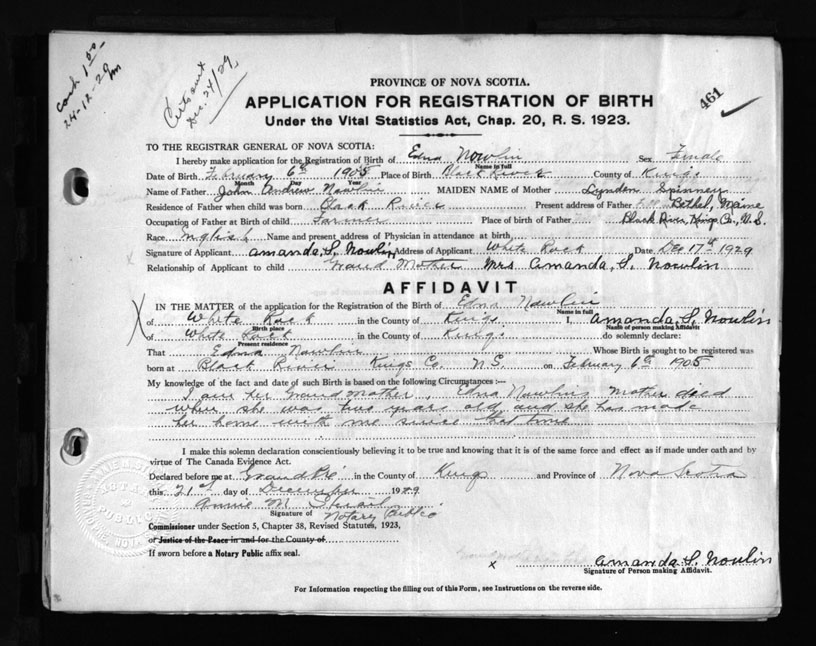 cash 1.50
24-12-29
Cert sent
Dec. 24/29
461
PROVINCE OF NOVA SCOTIA.
APPLICATION FOR REGISTRATION OF BIRTH
Under the Vital Statistics Act, Chap. 20, R. S. 1923.
TO THE REGISTRAR GENERAL OF NOVA SCOTIA:
I hereby make application for the Registration of Birth of Edna Nowlin Sex Female
Name in full
Date of Birth February 6th 1905 Place of Birth Black River County of Kings
Month Day Year
Name of Father John Andrew Nowlin MAIDEN NAME of Mother Lynden Spinney
Residence of Father when child was born Black River Present address of Father Bethel, Maine
Occupation of Father at Birth of child Farmer Place of birth of Father Black River, Kings Co, N.S.
Race English Name and present address of Physician in attendance at birth
Signature of Applicant Amanda S. Nowlin Address of Applicant White Rock Date Dec 17th 1929
Relationship of Applicant to child Grand Mother Mrs Amanda, S. Nowlin
AFFIDAVIT
IN THE MATTER of the application for the Registration of the Birth of Edna Nowlin
Name in full
of White Rock in the County of Kings I, Amanda, S. Nowlin
Birth place Name of person making Affidavit
of White Rock in the County of Kings do solemnly declare:
Present residence
That Edna Nowlin Whose Birth is sought to be registered was
born at Black River Kings Co. N.S. on February 6th 1905
My knowledge of the fact and date of such Birth is based on the following Circumstances:—
I am her Grandmother, Edna Nowlins Mother died
when she was two years old and she has made
her home with me since that time
I make this solemn declaration conscientiously believing it to be true and knowing that it is of the same force and effect as if made under oath and by
virtue of The Canada Evidence Act.
Declared before me at Grand Pré in the County of Kings and Province of Nova Scotia
this 21st day of December 1929
Annie M.
Signature of Notary Public
Commissioner under Section 5, Chapter 38, Revised Statutes, 1923,
or Justice of the Peace in and for the County of
If sworn before a Notary Public affix seal.
x Amanda S. Nowlin
Signature of Person making Affidavit.
For Information respecting the filling out of this Form, see Instructions on the reverse side.